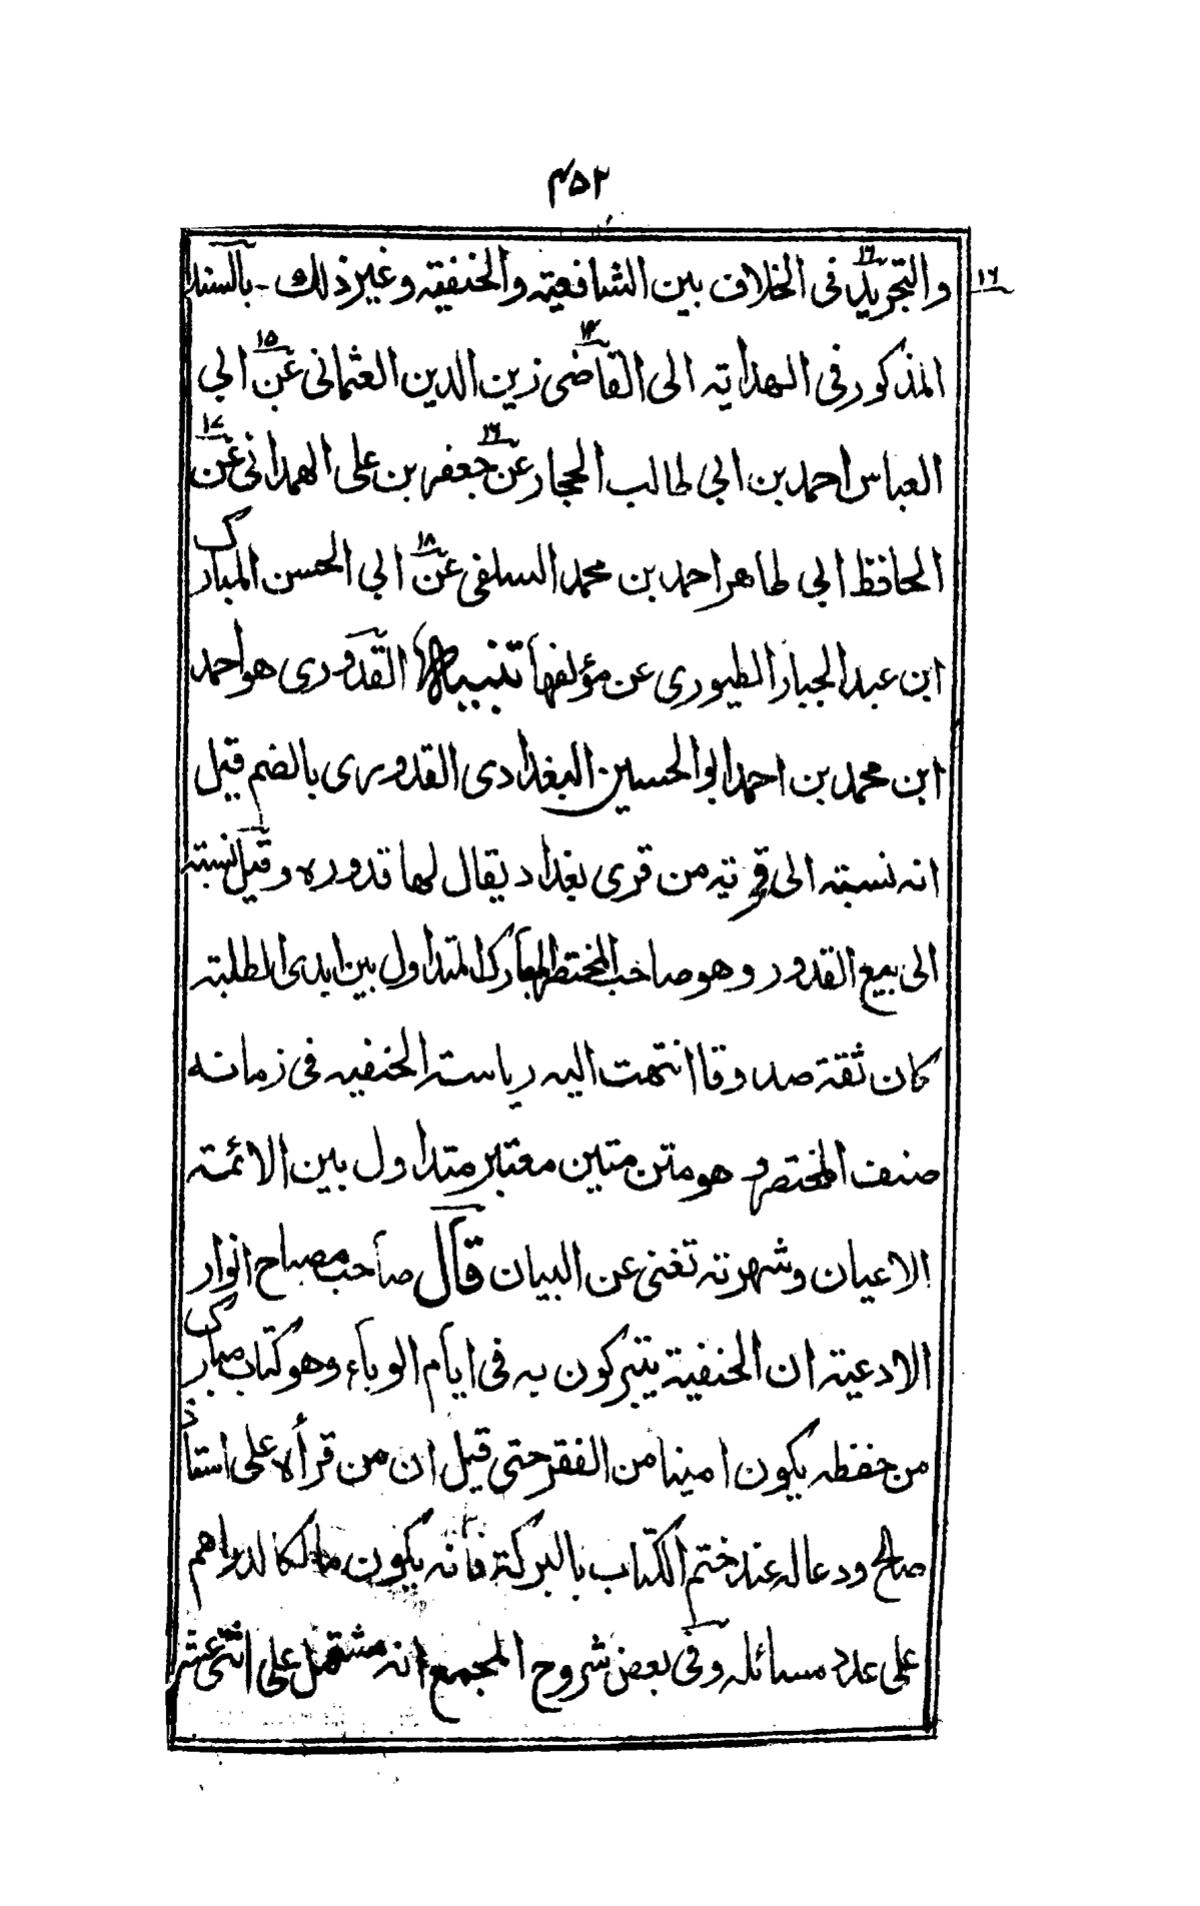 ۴۵۲
والتجريد فى الخلاف بين الشافعية والحنفية وغير ذلك - بالسند
۱۶
المذكور فى الهداية الى القاضى زين الدين العثمانى عن ابي
العباس احمد بن ابي طالب الحجار عن جعفر بن على الهمدانى عن
الحافظ ابي طاهر احمد بن محمد السلفى عن ابي الحسن المبارك
ابن عبد الجبار الطيورى عن مؤلفها تنبيه القدورى هو احمد
ابن محمد بن احمد ابو الحسين البغدادى القدورى بالضم قيل
انه نسبة الى قرية من قرى بغداد يقال لها قدوره وقيل نسبة
الى بيع القدور وهو صاحب المختصر المبارك المتداول بين ايدى الطلبة
كان ثقة صدوقا انتهت اليه رياسة الحنفيه فى زمانه
صنف المختصر وهو متن متين معتبر متداول بين الائمة
الاعيان وشهرته تغنى عن البيان قال صاحب مصباح انوار
الادعية ان الحنفية يتبركون به فى ايام الوباء وهو كتاب مبارك
من حفظه يكون امينا من الفقر حتى قيل ان من قرأه على استاذ
صالح ودعا له عند ختم الكتاب بالبركة فانه يكون مالكا لدراهم
على عدد مسائله وفى بعض شروح المجمع انه مشتمل على اثنى عشر